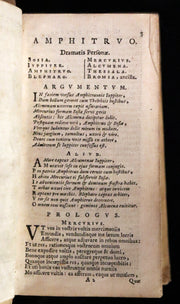 3
AMPHITRVO.
Dramatis Personæ.
SOSIA. MERCVRIVS.
IVPPITER. ALCVMENA.
AMPHITRVO. THESSALA.
BLEPHARO. BROMIA, ancilla.
ARGVMENTVM.
IN faciem versus Amphitruonis Iuppiter,
Dum bellum gereret cum Thelebois hostibus,
Alcmenam uxorem cepit usurariam.
Mercurius formam Sosiæ servi gerit
Absentis: his Alcmena decipitur dolis.
Postquam rediere veri Amphitruo & Sosia,
Uterque luduntur dolis mirum in modum.
Hinc jurgium, tumultus, uxori & viro,
Donec cum tonitru voce missa ex æthere,
Adulterum se Iuppiter confessus est.
ALIUD.
AMore captus Alcumenas Iuppiter,
Mutavit sese in ejus formam conjugis,
Pro patria Amphitruo dum cernit cum hostibus.
Habitu Mercurius ei subservit Sosiæ.
Is advenientis servum & dominum frustra habet.
Turbas uxori ciet Amphitruo: atque invicem
Raptant pro mœchis. Blepharo captus arbiter,
Uter sit non quit Amphitruo decernere.
Omnem rem noscunt: geminos Alcumena enititur.
PROLOGVS.
MERCVRIVS.
VT vos in vostris voltis mercimoniis
Emundis, vendundisque me lætum lucris
Afficere, atque adjuvare in rebus omnibus:
Et ut res rationesque vostrorum omnium
Bene expedire voltis peregrique & domi,
Bonoque atque amplo auctare perpetuo lucro,
Quasque incepistis res, quasque inceptabitis:
A 2 Quæ